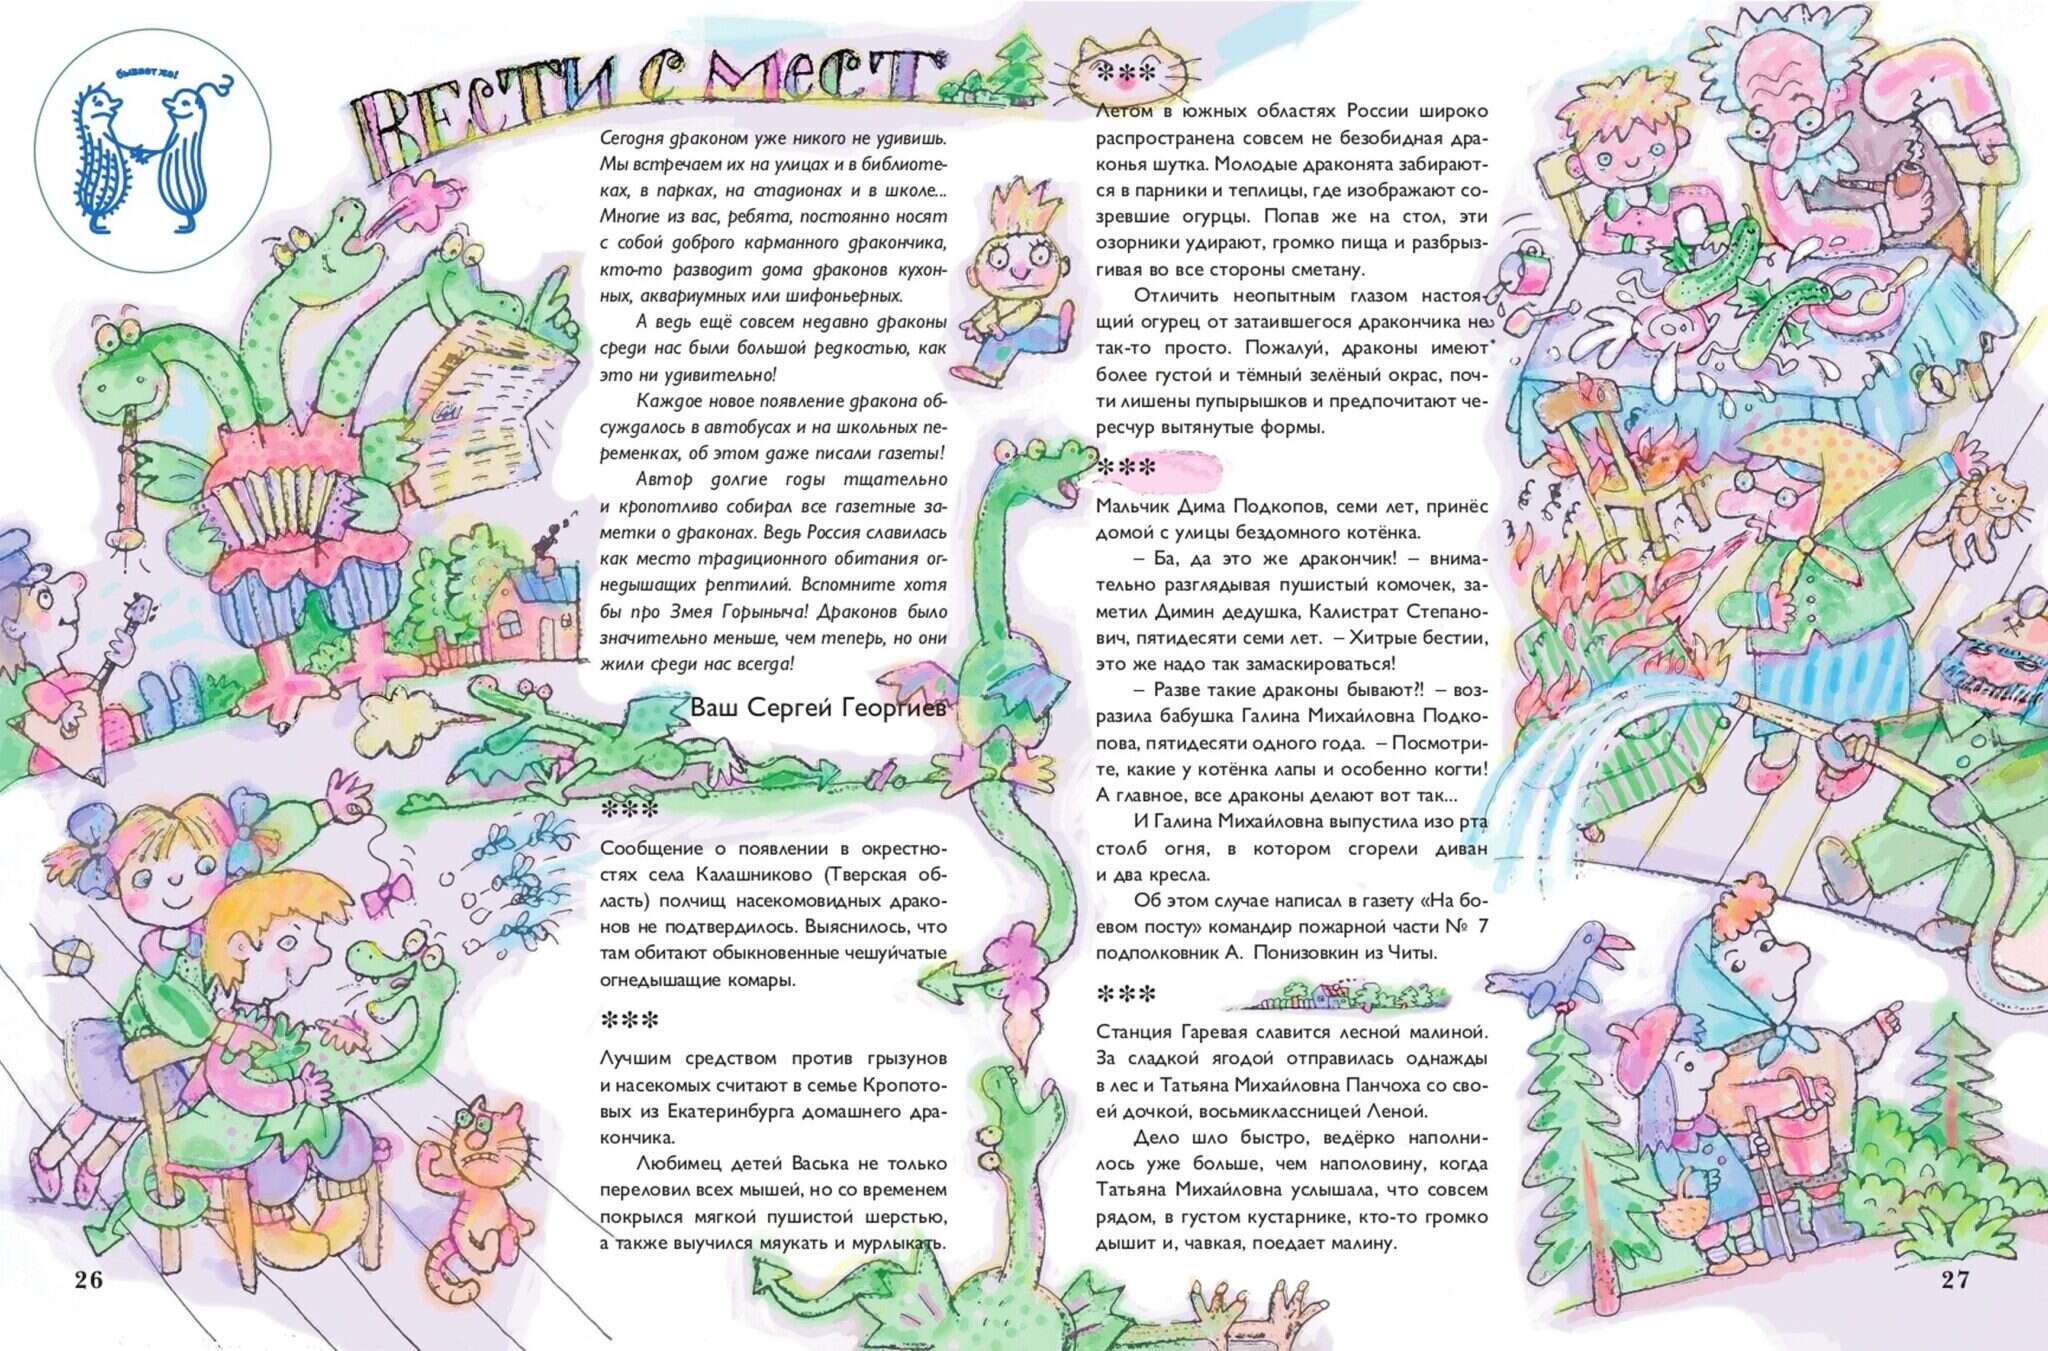 бывает же!
ВЕСТИ С МЕСТ
Сегодня драконом уже никого не удивишь.
Мы встречаем их на улицах и в библиоте-
ках, в парках, на стадионах и в школе...
Многие из вас, ребята, постоянно носят
с собой доброго карманного дракончика,
кто-то разводит дома драконов кухон-
ных, аквариумных или шифоньерных.
А ведь ещё совсем недавно драконы
среди нас были большой редкостью, как
это ни удивительно!
Каждое новое появление дракона об-
суждалось в автобусах и на школьных пе-
ременках, об этом даже писали газеты!
Автор долгие годы тщательно
и кропотливо собирал все газетные за-
метки о драконах. Ведь Россия славилась
как место традиционного обитания ог-
недышащих рептилий. Вспомните хотя
бы про Змея Горыныча! Драконов было
значительно меньше, чем теперь, но они
жили среди нас всегда!
Ваш Сергей Георгиев
***
Сообщение о появлении в окрестно-
стях села Калашниково (Тверская об-
ласть) полчищ насекомовидных драко-
нов не подтвердилось. Выяснилось, что
там обитают обыкновенные чешуйчатые
огнедышащие комары.
***
Лучшим средством против грызунов
и насекомых считают в семье Кропото-
вых из Екатеринбурга домашнего дра-
кончика.
Любимец детей Васька не только
переловил всех мышей, но со временем
покрылся мягкой пушистой шерстью,
а также выучился мяукать и мурлыкать.
26
***
Летом в южных областях России широко
распространена совсем не безобидная дра-
конья шутка. Молодые драконята забирают-
ся в парники и теплицы, где изображают со-
зревшие огурцы. Попав же на стол, эти
озорники удирают, громко пища и разбрыз-
гивая во все стороны сметану.
Отличить неопытным глазом настоя-
щий огурец от затаившегося дракончика не
так-то просто. Пожалуй, драконы имеют
более густой и тёмный зелёный окрас, поч-
ти лишены пупырышков и предпочитают че-
ресчур вытянутые формы.
***
Мальчик Дима Подкопов, семи лет, принёс
домой с улицы бездомного котёнка.
– Ба, да это же дракончик! – внима-
тельно разглядывая пушистый комочек, за-
метил Димин дедушка, Калистрат Степано-
вич, пятидесяти семи лет. – Хитрые бестии,
это же надо так замаскироваться!
– Разве такие драконы бывают?! – воз-
разила бабушка Галина Михайловна Подко-
пова, пятидесяти одного года. – Посмотри-
те, какие у котёнка лапы и особенно когти!
А главное, все драконы делают вот так...
И Галина Михайловна выпустила изо рта
столб огня, в котором сгорели диван
и два кресла.
Об этом случае написал в газету «На бо-
евом посту» командир пожарной части № 7
подполковник А. Понизовкин из Читы.
***
Станция Гаревая славится лесной малиной.
За сладкой ягодой отправилась однажды
в лес и Татьяна Михайловна Панчоха со сво-
ей дочкой, восьмиклассницей Леной.
Дело шло быстро, ведёрко наполни-
лось уже больше, чем наполовину, когда
Татьяна Михайловна услышала, что совсем
рядом, в густом кустарнике, кто-то громко
дышит и, чавкая, поедает малину.
27